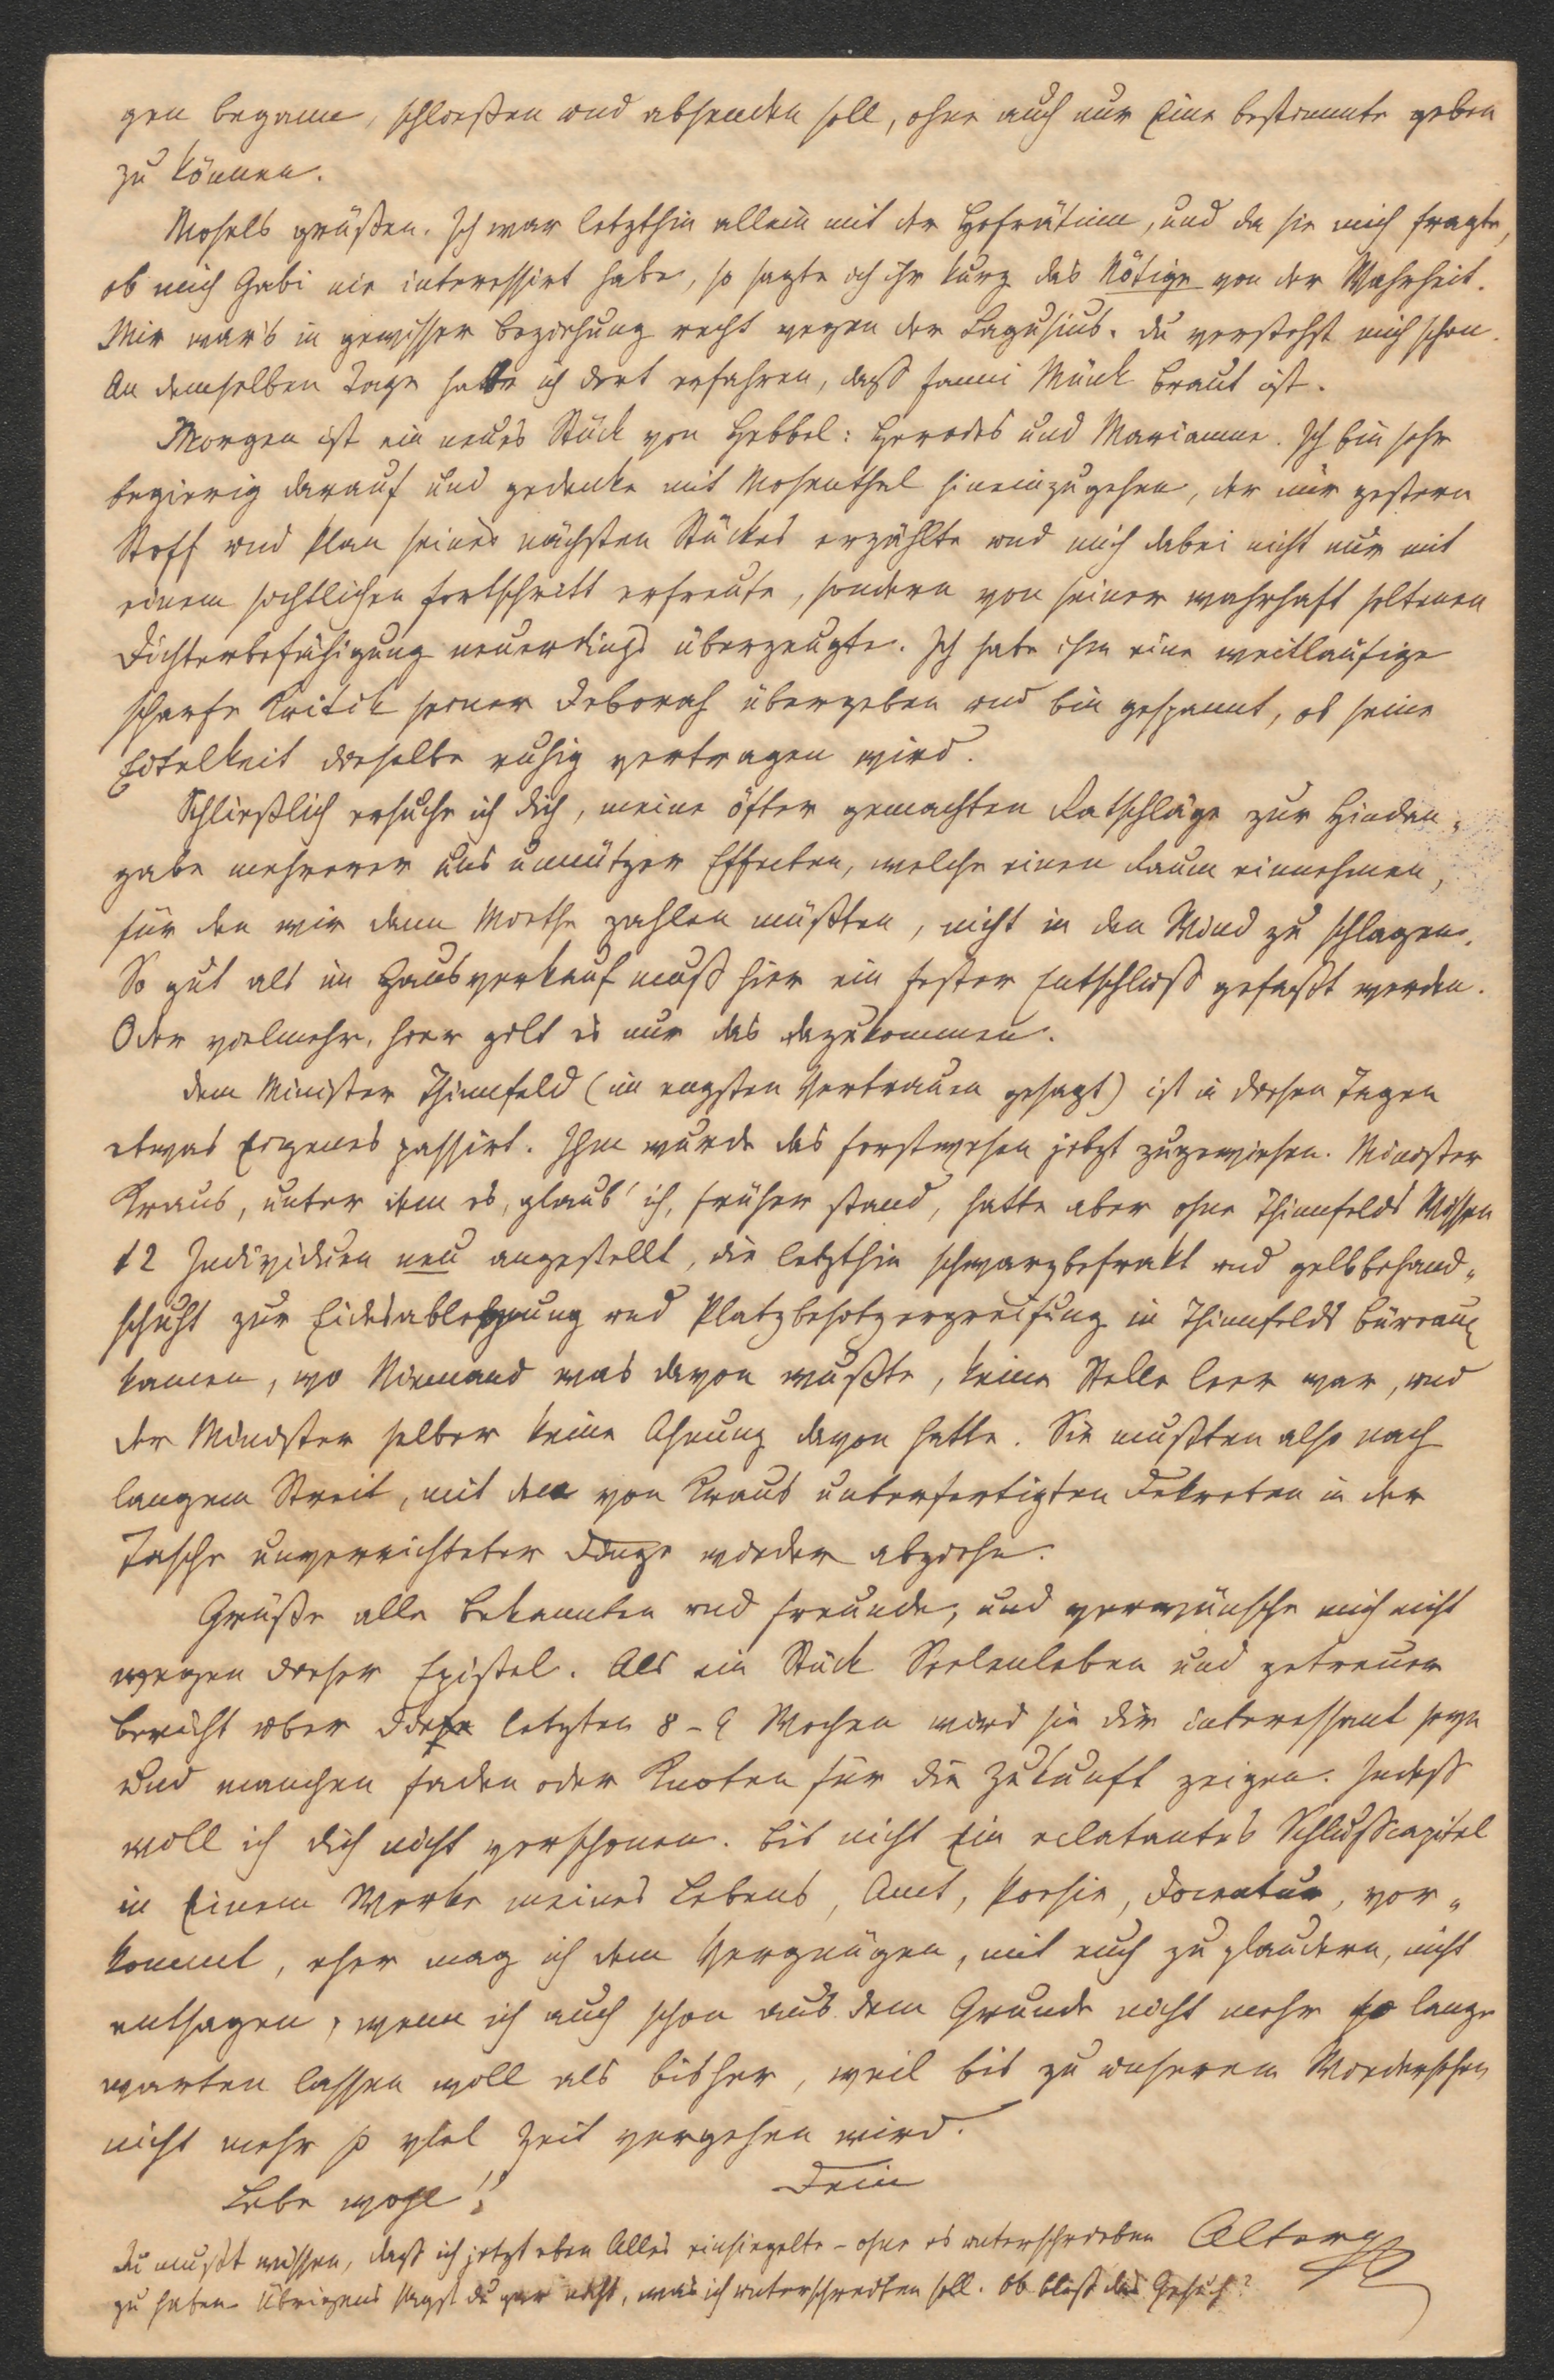 gen begann, schließen und absenden soll, ohne auch nur Eine bestimmte geben
zu können.
Mosels grüßen. Ich war letzthin allein mit der Hofrätinn, und da sie mich fragte,
ob mich Gabi nie interessirt habe, so sagte ich ihr kurz das Nötige von der Wahrheit.
Mir war's in gewisser Beziehung recht wegen der Lagusius. Du verstehst mich schon.
An demselben Tage hatte ich dort erfahren, dass Fanni Münk Braut ist.
Morgen ist ein neues Stück von Hebbel: Herodes und Mariamne. Ich bin sehr
begierig darauf und gedenke mit Mosenthal hineinzugehen, der mir gestern
Stoff und Plan seines nächsten Stückes erzählte und mich dabei nicht nur mit
einem sichtlichen Fortschritt erfreute, sondern von seiner wahrhaft seltenen
Dichterbefähigung neuerdings überzeugte. Ich habe ihm eine weitläufige
scharfe Kritik seiner Deborah übergeben und bin gespannt, ob seine
Eitelkeit dieselbe ruhig vertragen wird.
Schließlich ersuche ich dich, meine öfter gemachten Ratschläge zur Hindan-
gabe mehrerer uns unnützer Effecten, welche einen Raum einnehmen,
für den wir dann Miethe zahlen müßten, nicht in den Wind zu schlagen.
So gut als im Hausverkauf muß hier ein fester Entschluss gefaßt werden.
Oder vielmehr, hier gilt es nur das dazukommen.
Dem Minister Thinnfeld (im engsten Vertrauen gesagt) ist in diesen Tagen
etwas Eigenes passirt. Ihm wurde das Forstwesen jetzt zugewiesen. Minister
Kraus, unter dem es, glaub' ich, früher stand, hatte aber ohne Thinnfelds Wissen
12 Individuen neu angestellt, die letzthin schwarzbefrakt und gelbbehand-
schuht zur Eidesablegung und Platzbesitzergreifung in Thinnfelds Büreaux
kamen, wo Niemand was davon wußte, keine Stelle leer war, und
der Minister selber keine Ahnung davon hatte. Sie mußten also nach
langem Streit, mit den von Kraus unterfertigten Dekreten in der
Tasche unverrichteter Dinge wieder abziehn.
Grüße alle Bekannten und Freunde, und verwünsche mich nicht
wegen dieser Epistel. Als ein Stück Seelenleben und getreuer
Bericht über diese letzten 8-9 Wochen wird sie dir interessant seyn
und manchen Faden oder Knoten für die Zukunft zeigen. Indeß
will ich dich nicht verschonen. Bis nicht Ein eclatantes Schlußcapitel
in Einem Werke meines Lebens, Amt, Poesie, Docentur, vor-
kommt, eher mag ich dem Vergnügen, mit euch zu plaudern, nicht
entsagen, wenn ich auch schon aus dem Grunde nicht mehr so lange
warten lassen will als bisher, weil bis zu unserem Wiedersehen
nicht mehr so viel Zeit vergehen wird.
Lebe wohl! Dein
Du mußt wissen, daß ich jetzt eben Alles einsiegelte - ohne es unterschrieben
zu haben. Übrigens sagst du gar nicht, was ich unterschreiben soll. Ob bloß das Gesuch?